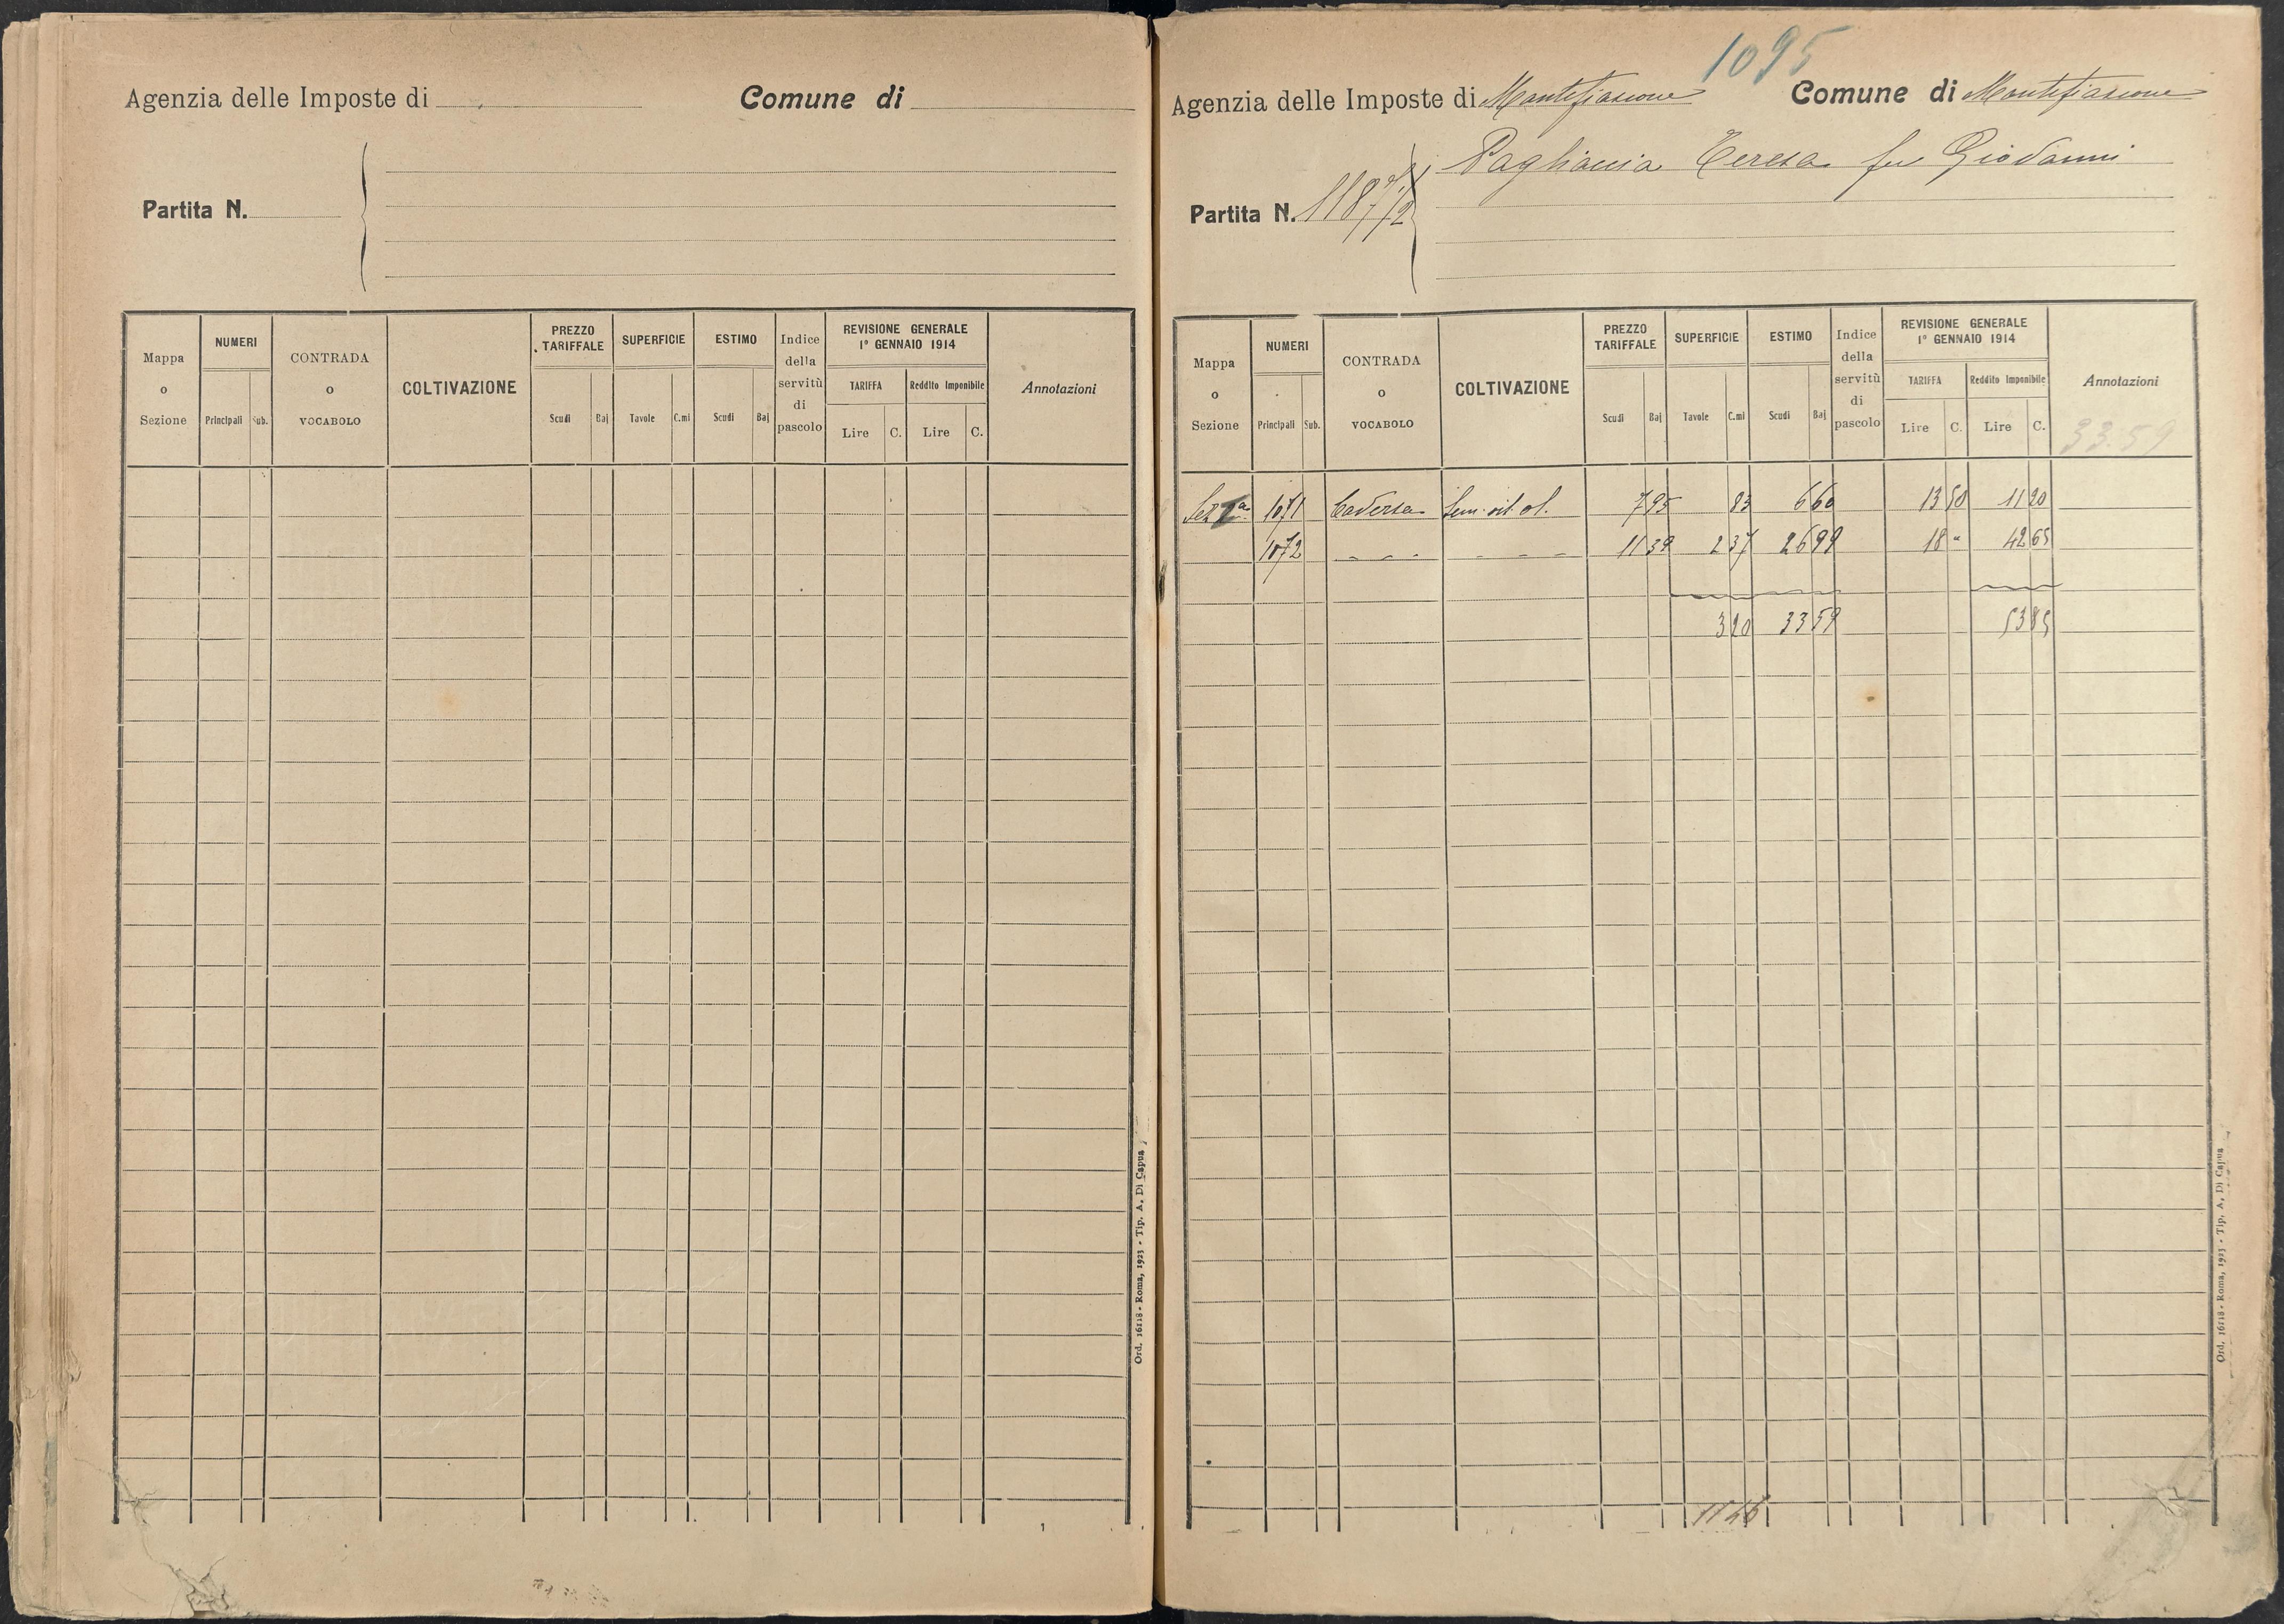 Agenzia delle Imposte di
Comune di
Partita N.
Mappa o Sezione
NUMERI
Principali
Sub.
CONTRADA o VOCABOLO
COLTIVAZIONE
PREZZO TARIFFALE
Scudi
Baj
SUPERFICIE
Tavole
C.mi
ESTIMO
Scudi
Baj
Indice della servitù di pascolo
REVISIONE GENERALE
1° GENNAIO 1914
TARIFFA
Reddito Imponibile
Lire
C.
Lire
C.
Annotazioni
Ord. 16118 - Roma, 1923 - Tip. A. Di Capua
1095
Agenzia delle Imposte di Montefiascone
Comune di Montefiascone
Pagliaccia Teresa fu Giovanni
Partita N. 1187/2
Mappa o Sezione
NUMERI
Principali
Sub.
CONTRADA o VOCABOLO
COLTIVAZIONE
PREZZO TARIFFALE
Scudi
Baj
SUPERFICIE
Tavole
C.mi
ESTIMO
Scudi
Baj
Indice della servitù di pascolo
REVISIONE GENERALE
1° GENNAIO 1914
TARIFFA
Reddito Imponibile
Lire
C.
Lire
C.
Annotazioni
33.59
Sez 1a 1071 Caversa Sem. vit. ol. 7 95 83 6 60 13 50 11 20
1072 11 39 2 37 26 99 18 - 42 65
3 20 33 59 53 85
Ord. 16118 - Roma, 1923 - Tip. A. Di Capua